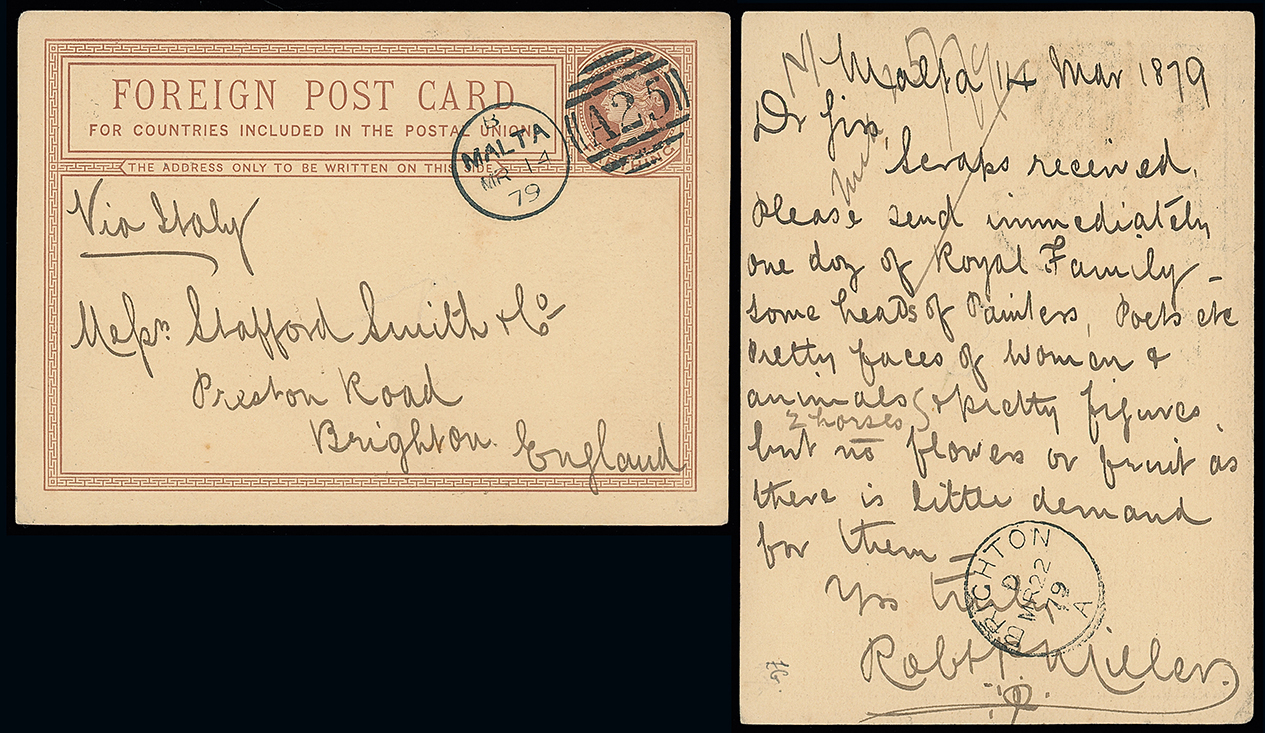 FOREIGN POST CARD
FOR COUNTRIES INCLUDED IN THE POSTAL UNION
THE ADDRESS ONLY TO BE WRITTEN ON THIS SIDE
B
MALTA
MR 14
79
A25
Via Italy
Messrs Stafford Smith & Co
Preston Road
Brighton.
England
Malta 14 Mar 1879
Dr Sirs,
Scraps received,
please send immediately
one doz of Royal Family –
some heads of Painters, Poets etc
pretty faces of women &
animals & pretty figures
2 horses
but no flowers or fruit as
there is little demand
for them –
Yrs truly
Robt Miller.
BRIGHTON
D
MR 22
79
A